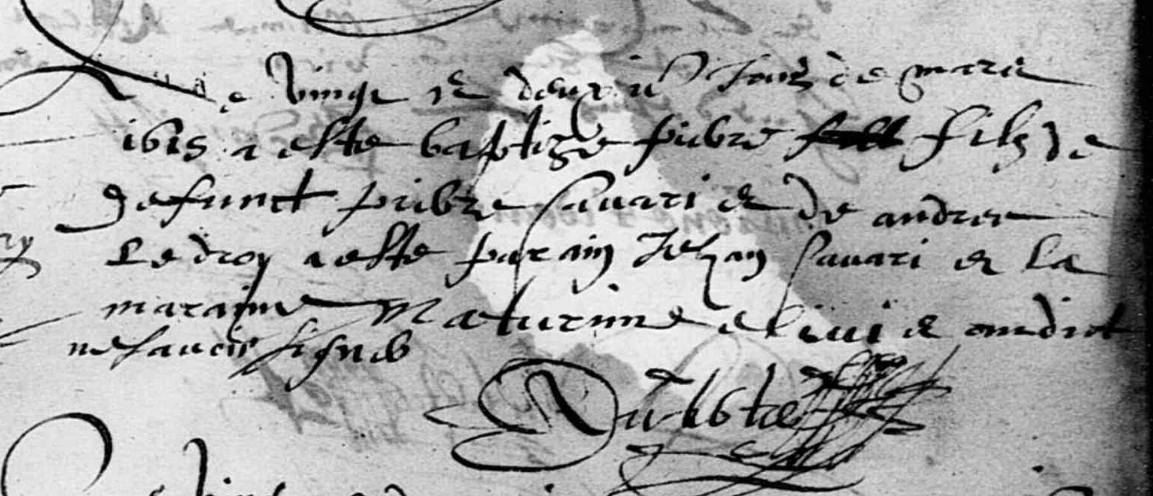 Le vingt et deux iè Jour de mars
1615 a este baptize pierre fill filz de
defunct pierre Savari et de andree
Ledroy a este parain Jehan Savari et la
maraine Maturine et ont dict
ne savoir signer